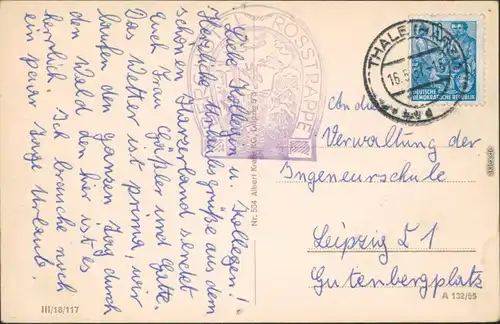 Liebe Kollegen u. Kollegen!
Herzliche Urlaubsgrüße aus dem
schönen Harzerland sendet
Euch Frau Gäßler und Gatte.
Das Wetter ist prima, wir
laufen den ganzen Tag durch
den Wald, denn hier ist es
herrlich. Ich brauche noch
ein paar Tage Urlaub.
III/18/117
ROSSTRAPPE
Nr. 504 Albert Leipzig
THALE (HARZ)
16.5
DEUTSCHE
DEMOKRATISCHE REPUBLIK
An die
Verwaltung der
Ingenieurschule
Leipzig C 1
Gutenbergplatz
A 132/55